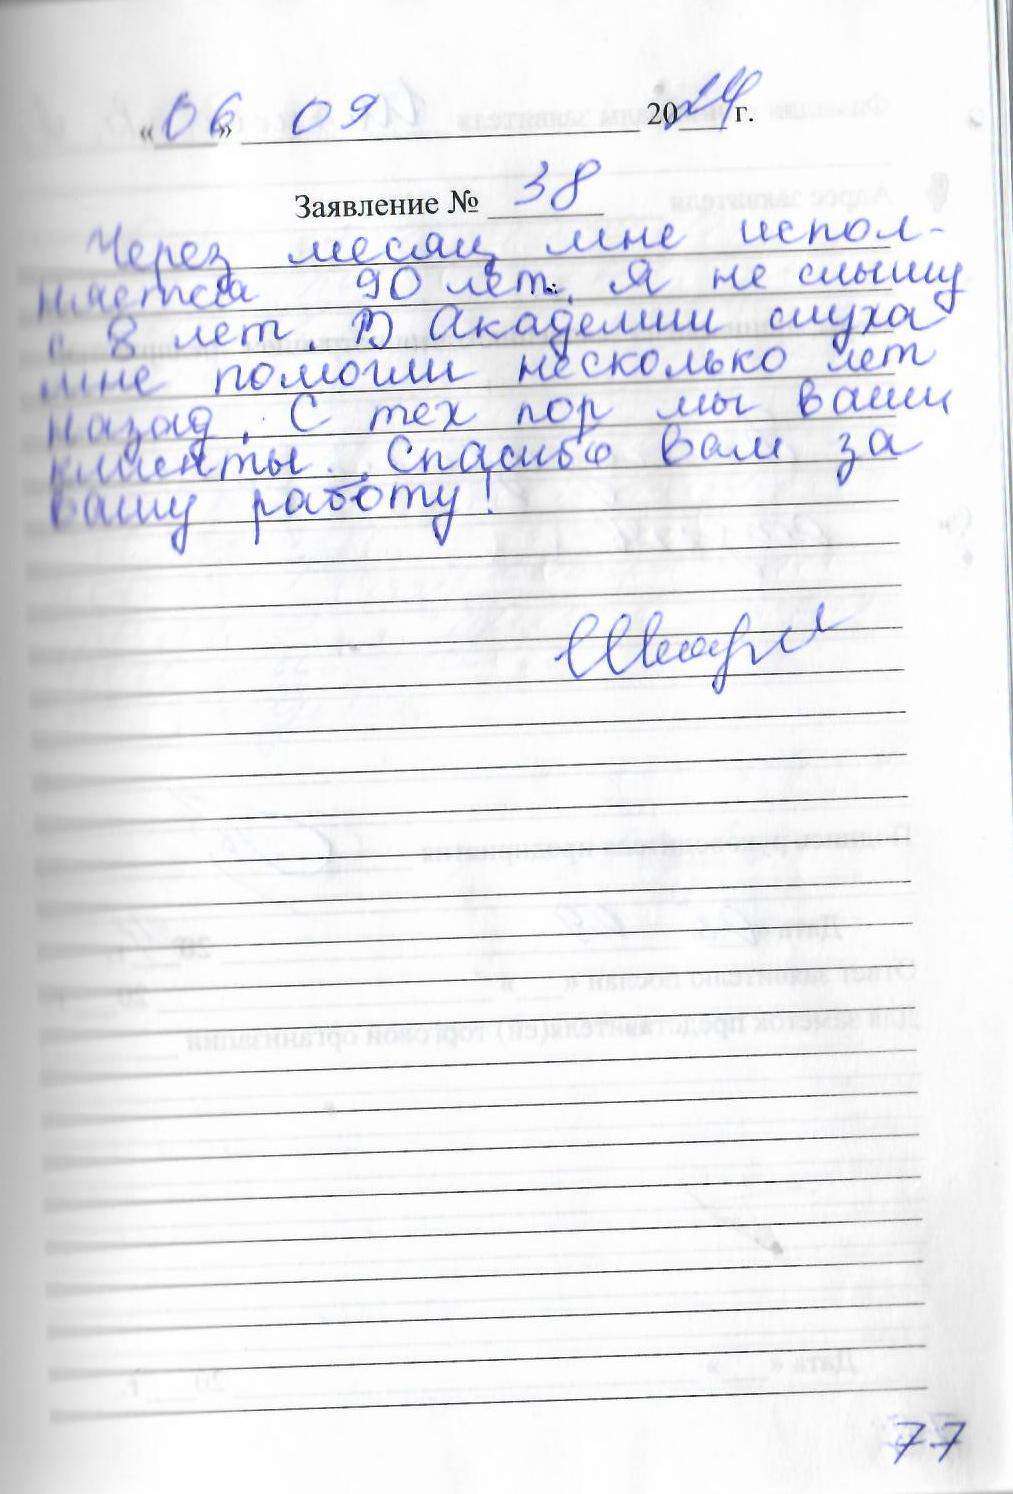 «06» 09 2024 г.
Заявление № 38
Через месяц мне испол-
няется 90 лет. Я не слышу
с 8 лет. В Академии слуха
мне помогли несколько лет
назад. С тех пор мы ваши
клиенты. Спасибо вам за
вашу работу!
77